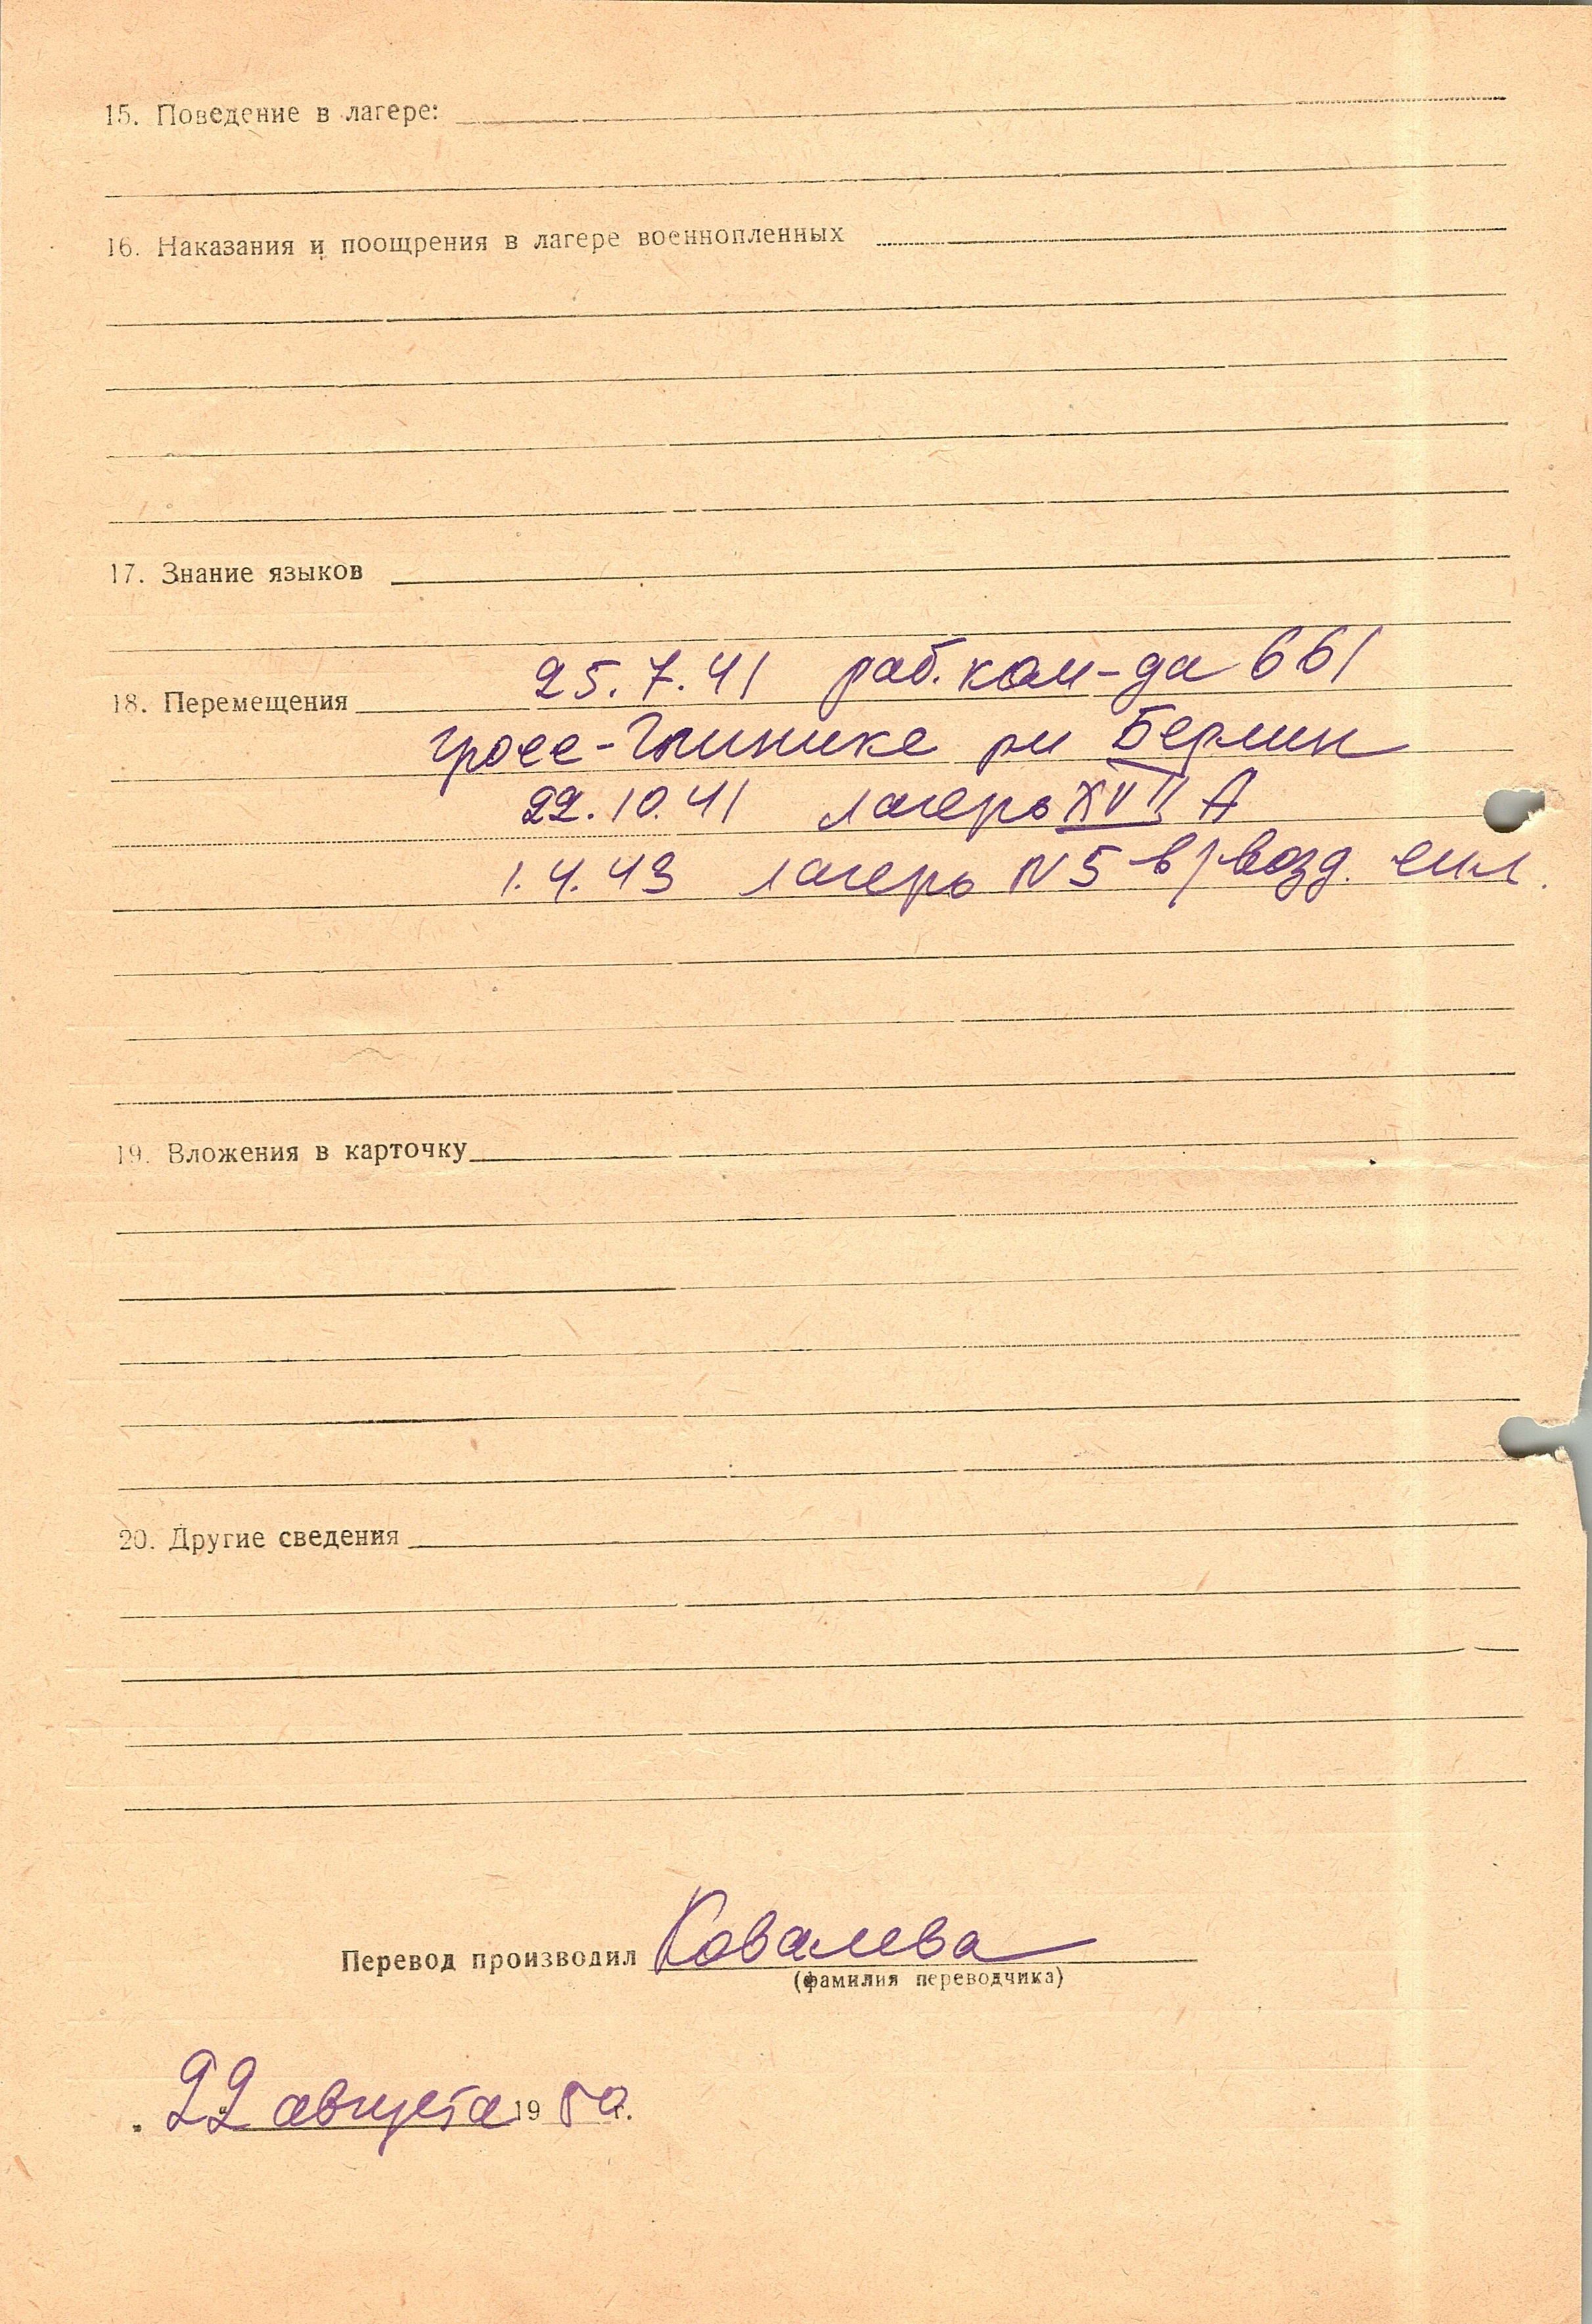 15. Поведение в лагере:
16. Наказания и поощрения в лагере военнопленных
17. Знание языков
25.7.41 раб. ком-да 661
18. Перемещения
Гросс-Глинике р-н Берлин
22.10.41 лагерь XVII A
1.4.43 лагерь N 5 в/возд. сил.
19. Вложения в карточку
20. Другие сведения
Перевод производил Ковалева
(фамилия переводчика)
22 августа 19 50 г.